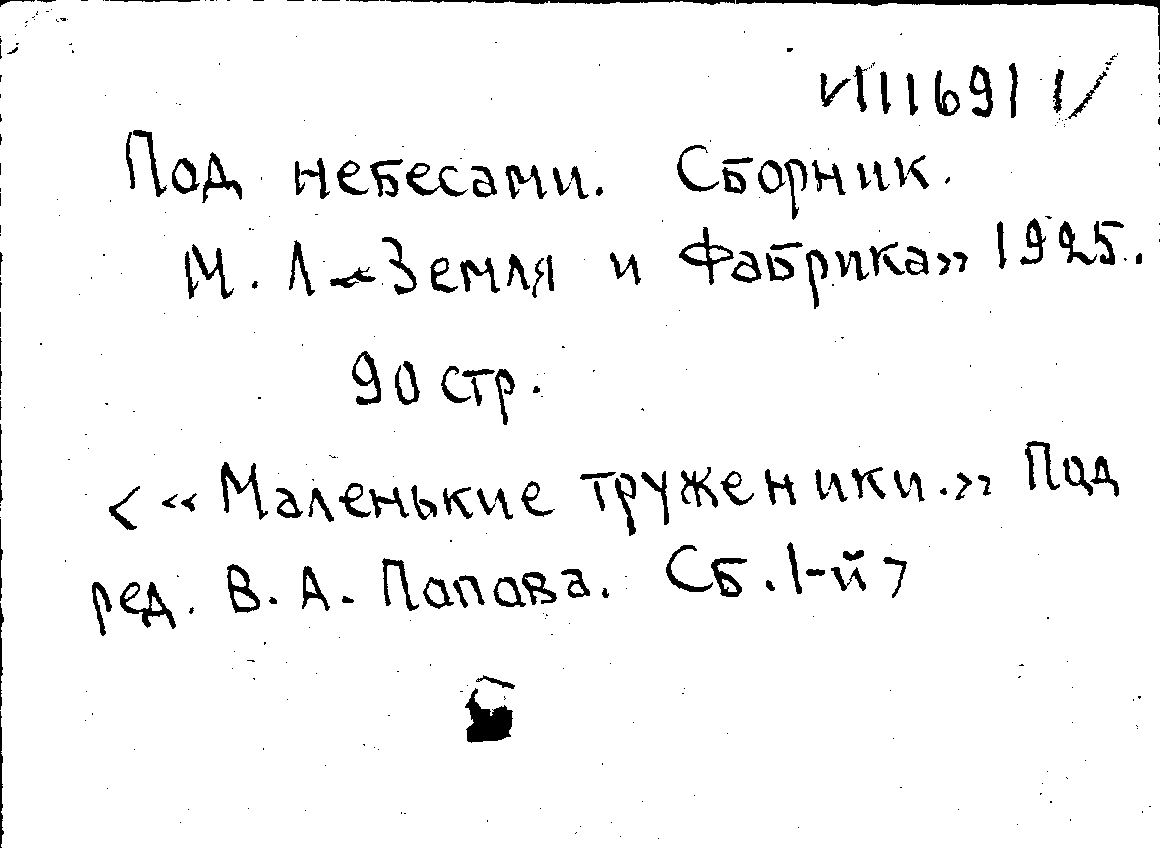 И11691 V
Под небесами. Сборник.
М. Л «Земля и Фабрика» 1925.
90 стр.
< «Маленькие труженики.» Под
ред. В. А. Папава. Сб. 1-й >